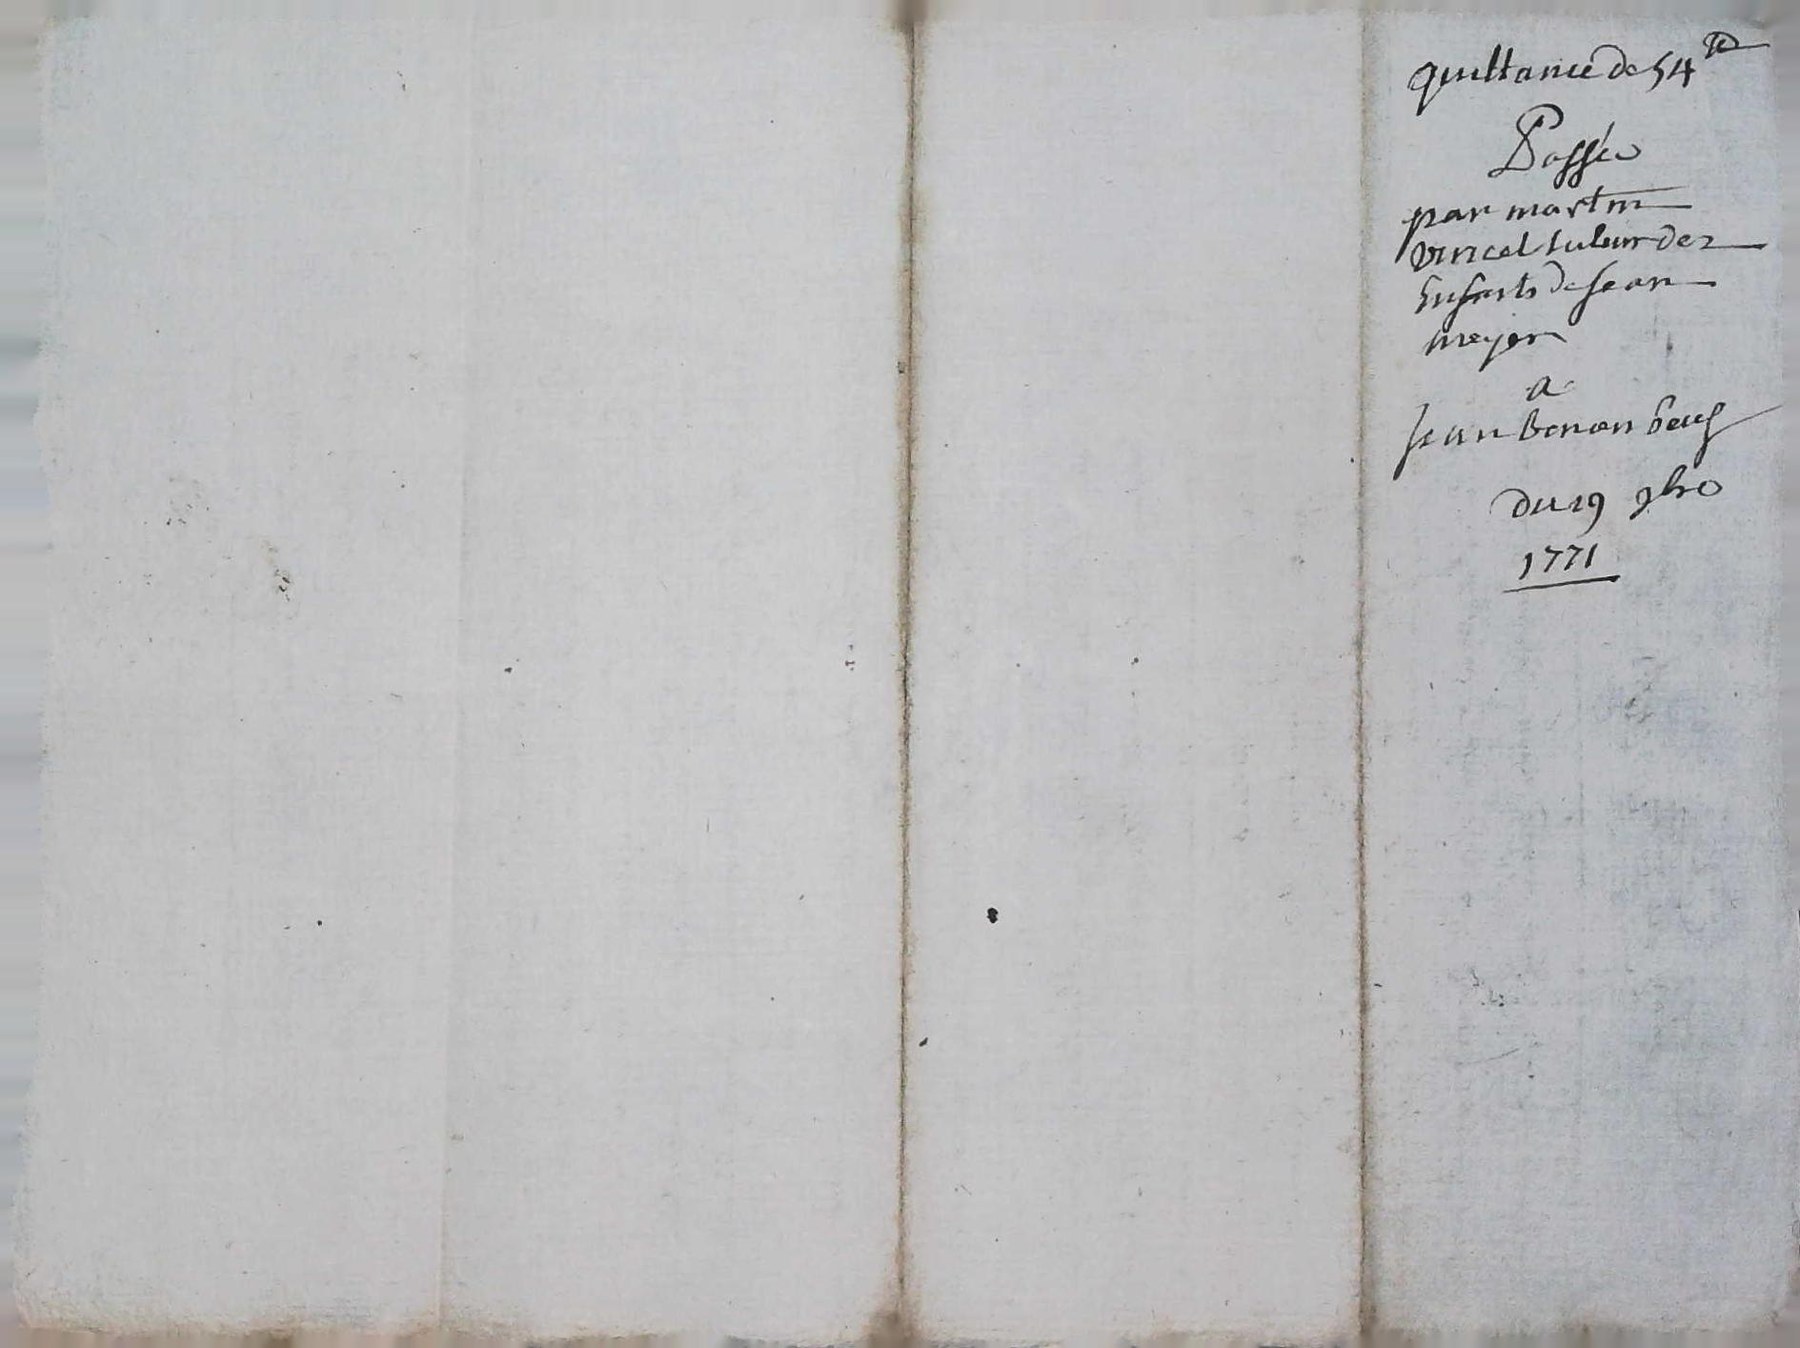 quittance de 54 ₶
Passée
par martin
vincel tuteur des
Enfants de Jean
meyer
a
Jean
du 29 9bre
1771